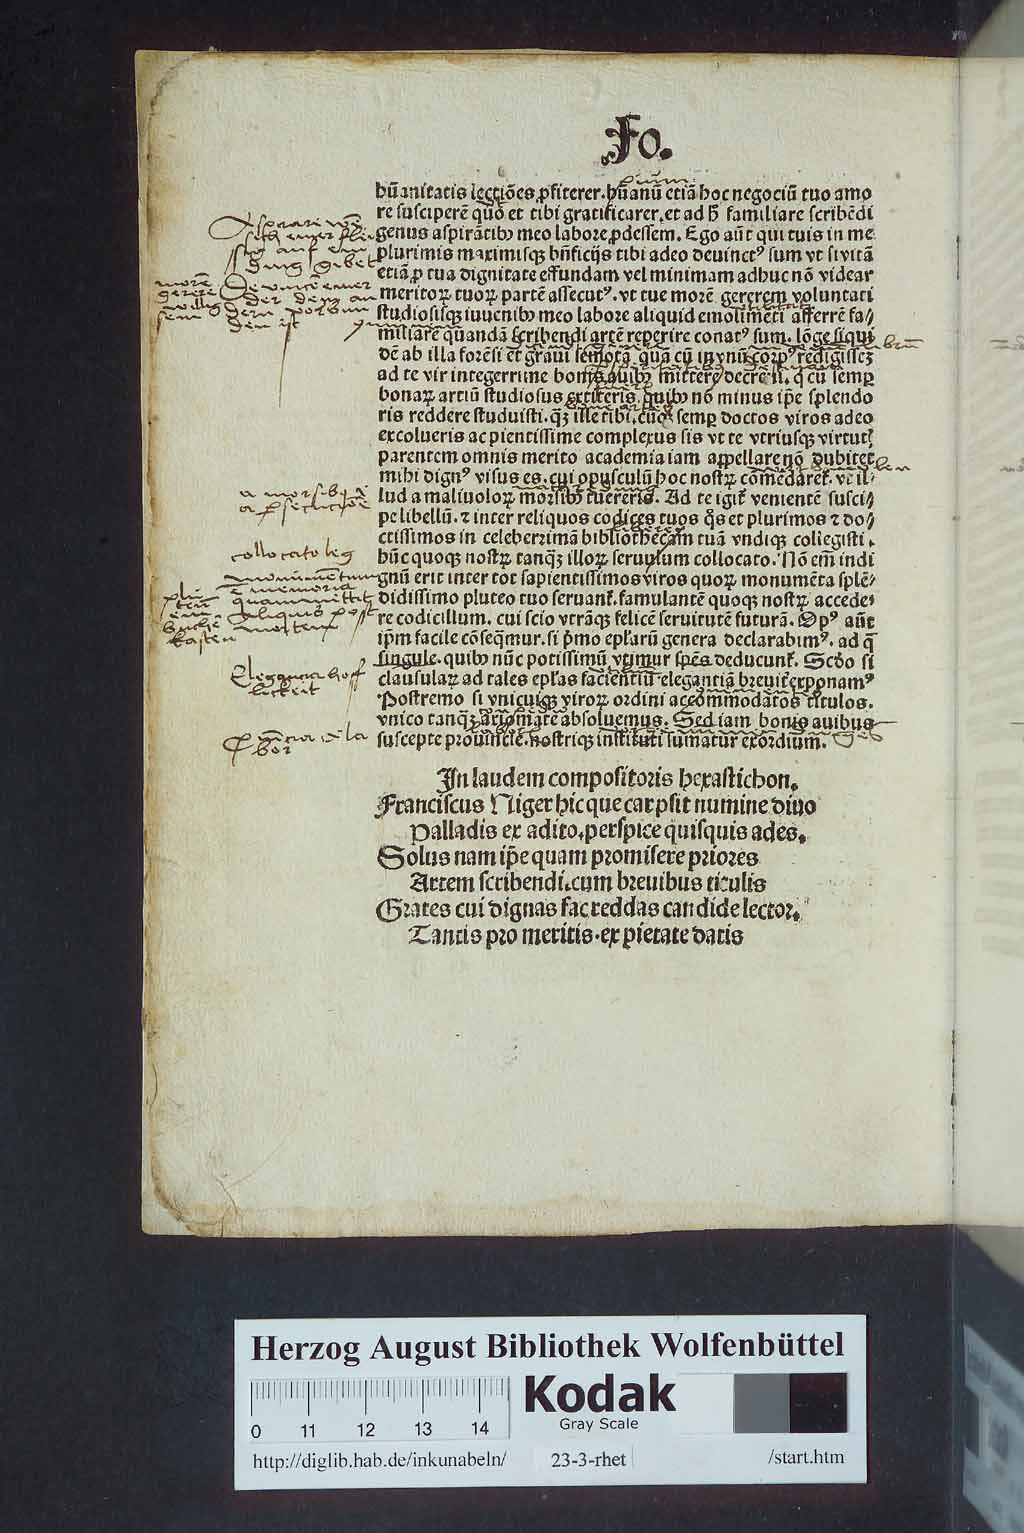 Fo.
hūanitatis lectiōes ꝓfiterer. hūanū etiā hoc negociū tuo amo
re susciperē quo et tibi gratificarer. et ad h̄ familiare scribēdi
genus aspirātibꝰ meo labore ꝓdessem. Ego aūt qui tuis in me
plurimis maximisqꝫ bn̄ficijs tibi adeo deuinctꝰ sum vt si vitā
etiā ꝓ tua dignitate effundam vel minimam adhuc nō videar
meritoꝝ tuoꝝ partē assecutꝰ. vt tue morē gererem voluntati
studiosisqꝫ iuuenibꝰ meo labore aliquid emolimēti afferrē fa//
miliarē quandā scribendi artē reperire conatꝰ sum. lōge siqui
dē ab illa forēsi et graui semotā. quā cū in vnū corpꝰ redigissēꝫ
ad te vir integerrime bonis auibꝫ mittere decreui. q̄ cū semꝑ
bonaꝝ artiū studiosus extiteris. quibꝰ nō minus ip̄e splendo
ris reddere studuisti. qꝫ ille tibi. cūqꝫ semꝑ doctos viros adeo
excolueris ac pientissime complexus sis vt te vtriusqꝫ virtutꝭ
parentem omnis merito academia iam appellare nō dubitet
mihi dignꝰ visus es. cui opusculū hoc nostꝝ cōmēdaret̄. vt il//
lud a maliuoloꝝ morsibꝰ tuereris. Ad te igit̄ venientē susci//
pe libellū. ⁊ inter reliquos codices tuos q̊s et plurimos ⁊ do//
ctissimos in celeberrimā bibliothecam tuā vndiqꝫ collegisti.
hūc quoqꝫ nostꝝ tanqꝫ illoꝝ seruulum collocato. Nō em̄ indi
gnū erit inter tot sapientissimos viros quoꝝ monumēta splē/
didissimo pluteo tuo seruant̄. famulantē quoqꝫ nostꝝ accede/
re codicillum. cui scio vtrāqꝫ felicē seruitutē futurā. Opꝰ aūt
ip̄m facile cōseq̄mur. si p̄mo ep̄laꝝ genera declarabimꝰ. ad q̄
singule. quibꝰ nūc potissimū vtimur sp̄es deducunt̄. Scd̄o si
clausulaꝝ ad tales ep̄las facientiū elegantiā breuit̄ exponamꝰ
Postremo si vnicuiqꝫ viroꝝ ordini accommodatos titulos.
vnico tanqꝫ axiomate absoluemus. Sed iam bonis auibus
suscepte prouincie. nostriqꝫ instituti sumatur exordium.
aspirare
morē
gerere
a morsibꝰ
a ꝑsecutione
collocato leg
monumentum
ē memoria
Elegancia hoff
lickeit
In laudem compositoris hexastichon.
Franciscus Niger hic que carpsit numine diuo
Palladis ex adito. perspice quisquis ades.
Solus nam ip̄e quam promisere priores
Artem scribendi. cum breuibus titulis
Grates cui dignas fac reddas candide lector.
Tantis pro meritis. ex pietate datis
Herzog August Bibliothek Wolfenbüttel
0 11 12 13 14
Kodak
Gray Scale
http://diglib.hab.de/inkunabeln/ 23-3-rhet /start.htm